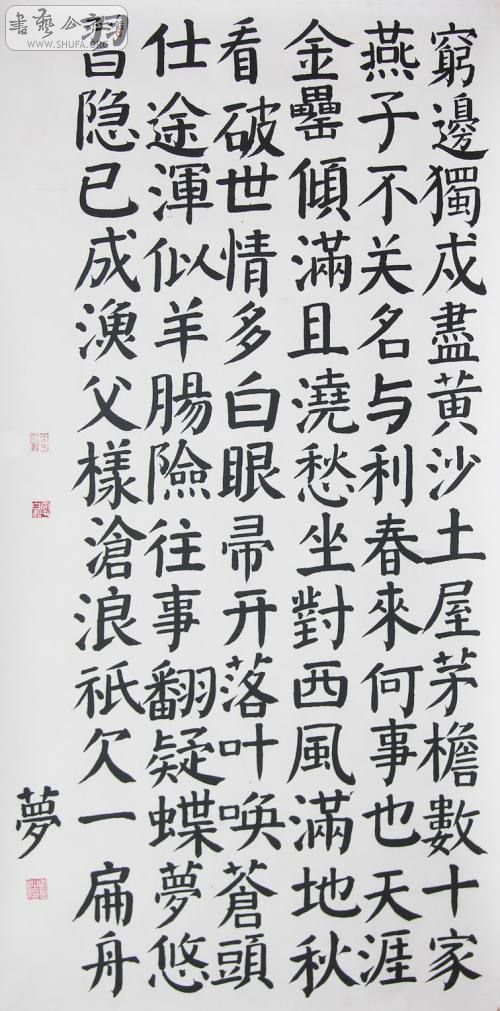 窮邊獨戍盡黄沙土屋茅檐數十家
燕子不关名与利春來何事也天涯
金罍傾滿且澆愁坐對西風滿地秋
看破世情多白眼帚开落叶唤蒼頭
仕途渾似羊腸險往事翻疑蝶夢悠
隐已成漁父樣滄浪祇欠一扁舟
夢
書藝公社
WWW.SHUFA.ORG